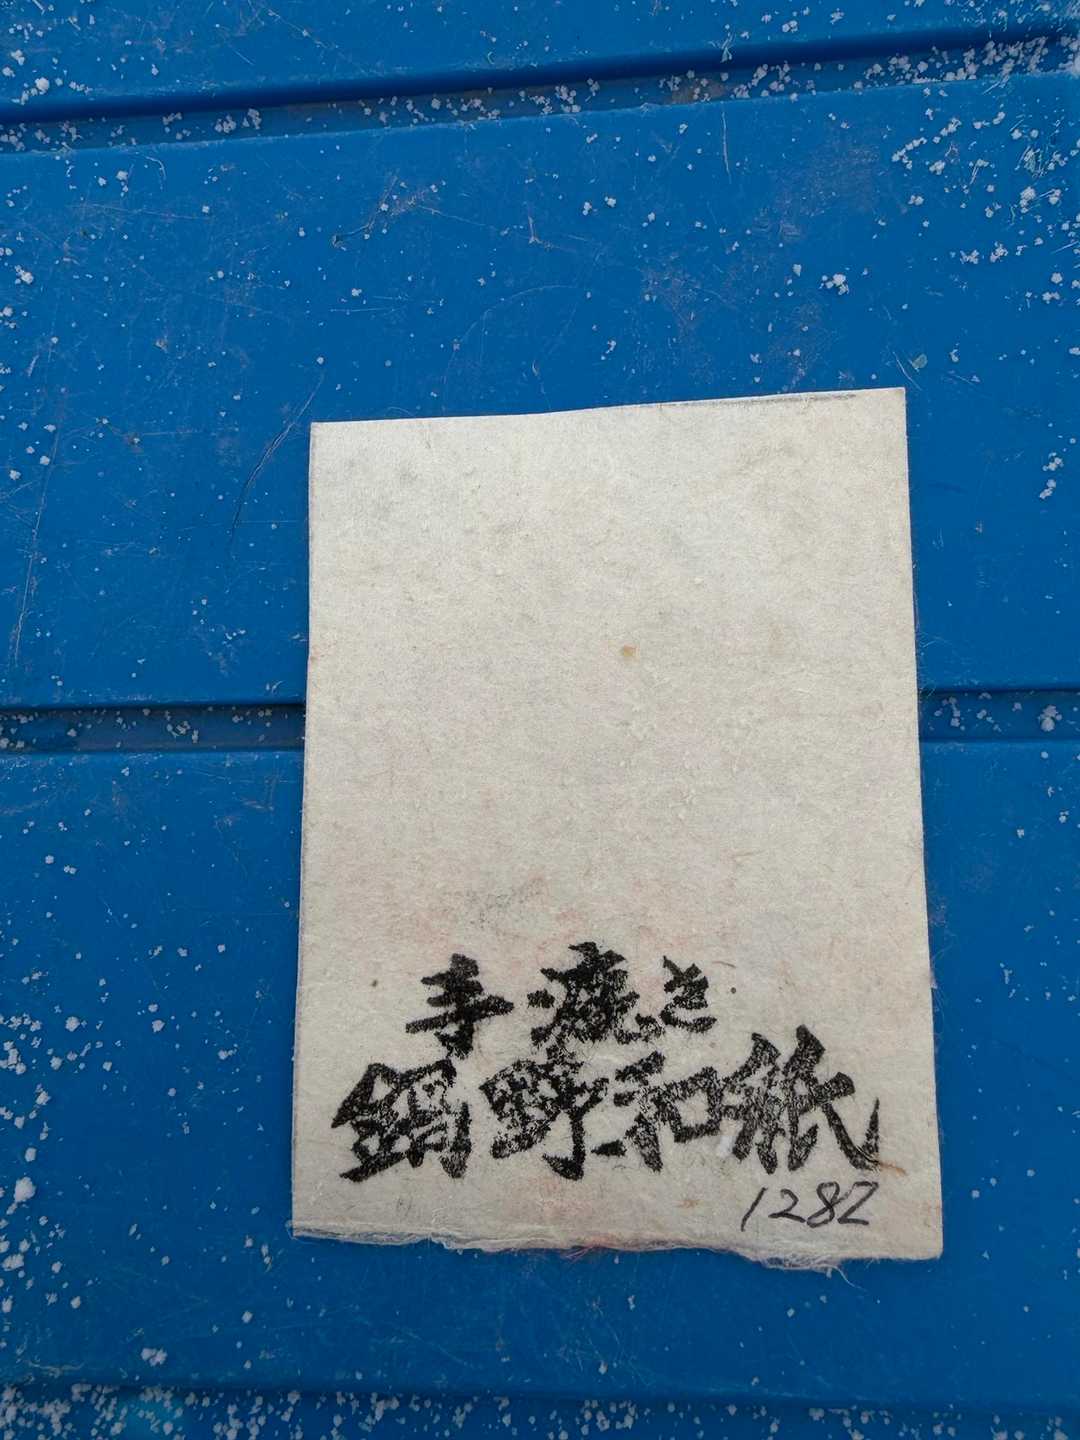 手漉き
鍋野和紙
1282